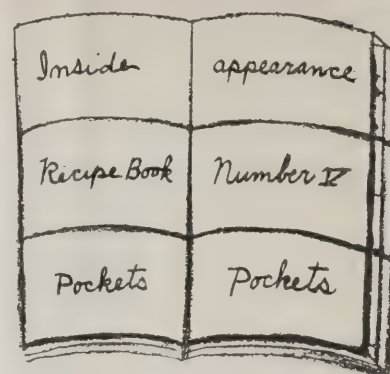 Inside appearance
Recipe Book Number IV
Pockets Pockets